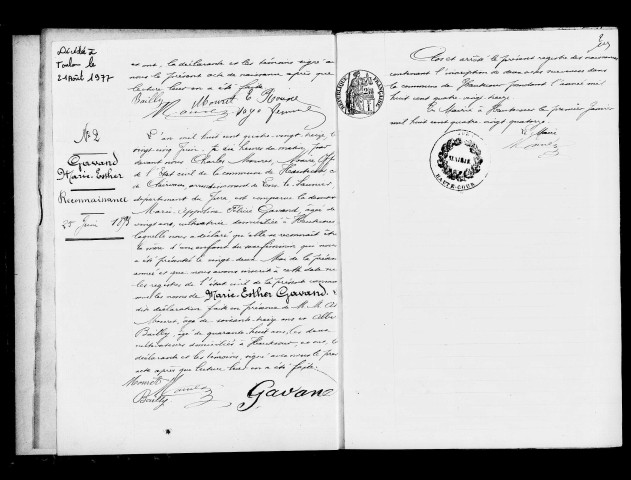 Décédée à
Toulon le
21 Août 1977
et ont, la déclarante et les témoins signé avec
nous le présent acte de naissance après que
lecture leur en a été faite
Bailly Mouret
N° 2
Gavand
Marie-Esther
Reconnaissance
25 Juin 1893
L'an mil huit cent quatre vingt treize le
vingt cinq Juin, à heures du matin, par
devant nous Charles Mouret, Maire, off
de l'Etat civil de la commune de Hautecour
de Clairvaux arrondissement de Lons le Saunier
département du Jura, est comparue la
Marie Félicie Gavand, âgée de
vingt ans, cultivatrice domiciliée à Hautecour
laquelle nous a déclaré qu'elle se reconnait être
la mère d'un enfant du sexe féminin qui nous
a été présenté le vingt deux Mai de la présente
année et que nous avons inscrit à cette date
les registres de l'état civil de la présente commune
sous les noms de Marie-Esther Gavand
dite déclaration faite en présence de M.M.
Mouret, âgé de soixante treize ans et
Bailly, âgé de quarante huit ans, les deux
cultivateurs domiciliés à Hautecour, et ont, la
déclarante et les témoins, signé avec nous le
acte après que lecture leur en a été faite.
Mouret
Bailly Gavand
2
Clos et arrêté le présent registre des naissances
contenant l'inscription de deux actes survenus dans
la commune de Hautecour pendant l'année mil
huit cent quatre vingt treize
En Mairie à Hautecour le premier Janvier
mil huit cent quatre vingt quatorze
Le Maire
RÉPUBLIQUE FRANÇAISE
HAUTE-COUR